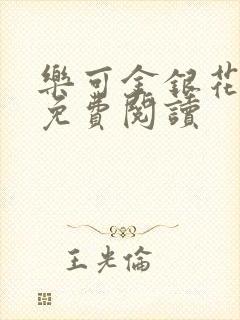 樂可金銀花
免費閱讀
王光倫